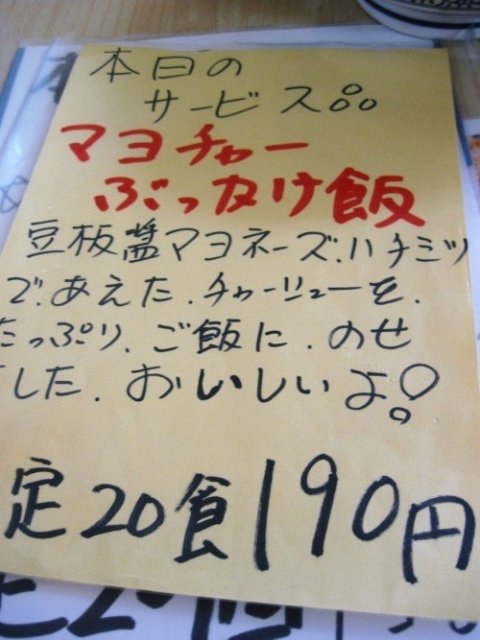 本日の
サービス品
マヨチャー
ぶっかけ飯
豆板醤マヨネーズ.ハチミツ
で.あえた.チャーシューを.
たっぷり.ご飯に.のせ
した.おいしいよ!
定20食190円